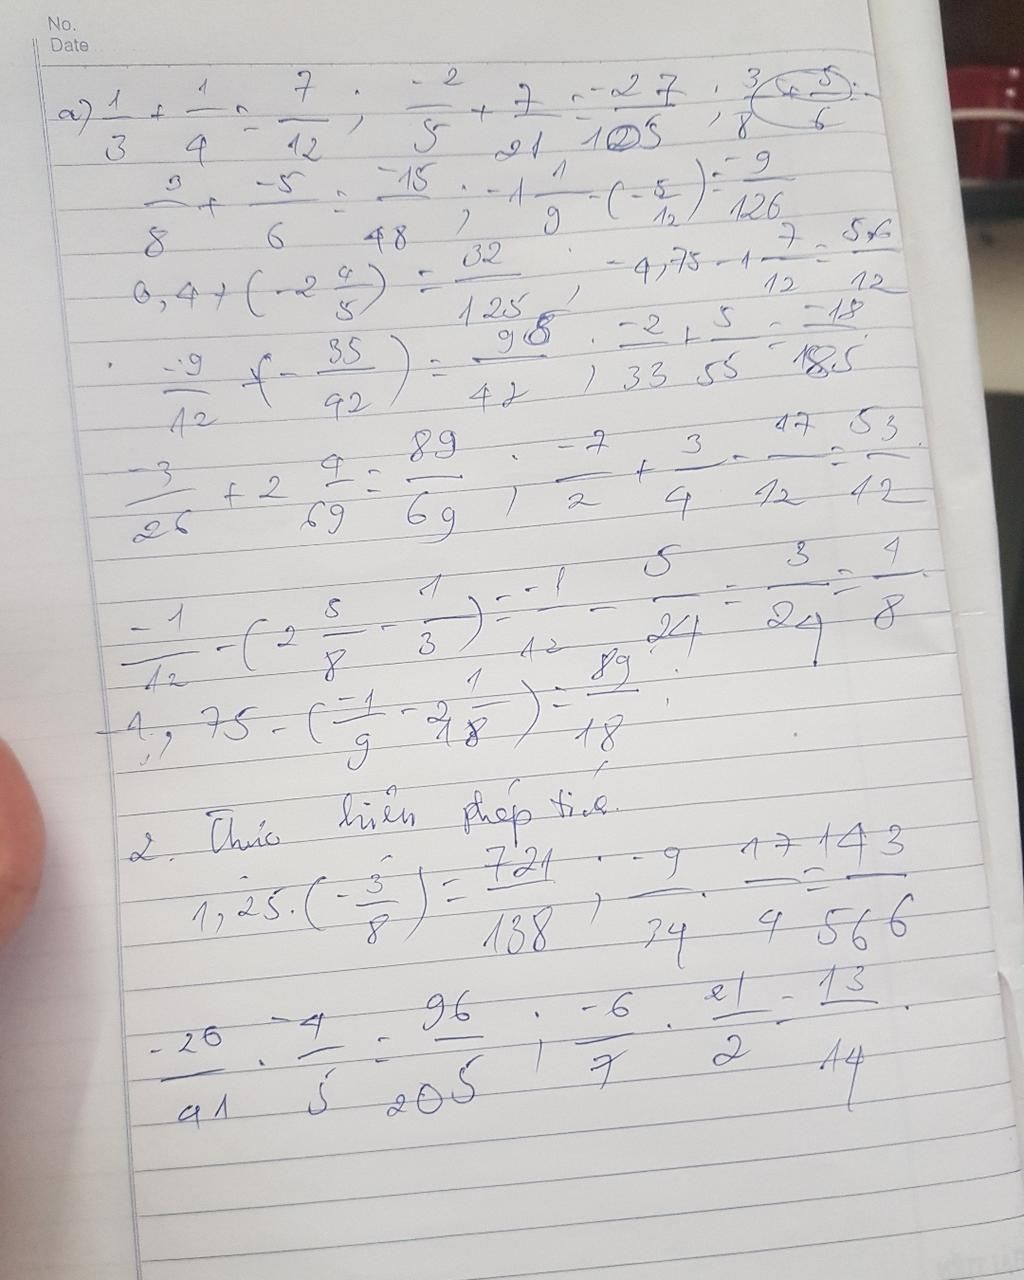 No.
Date
a) 1/3 + 1/4 = 7/12 ; -2/5 + 7/21 = -27/105 ; 3/8 + 5/6 =
3/8 + -5/6 = -15/48 ; -1 1/9 - (-5/12) = -9/126
0,4 + (-2 4/5) = 32/125 ; -4,75 - 1 7/12 = 56/12
-9/12 + (- 35/42) = 98/42 ; -2/33 + 5/55 = -18/185
-3/26 + 2 4/69 = 89/69 ; -7/2 + 3/4 - 17/12 = 53/12
-1/12 - (2 5/8 - 1/3) = -1/12 - 5/24 = 3/24 = 1/8
-4,75 - (-1/9 - 2 1/18) = 89/18 ;
2. Thực hiện phép tính.
1,25. (-3/8) = 721/138 ; -9/34 . 17/4 = 143/566
-20/41 . -4/5 = 96/205 ; -6/7 . 21/2 = 13/14